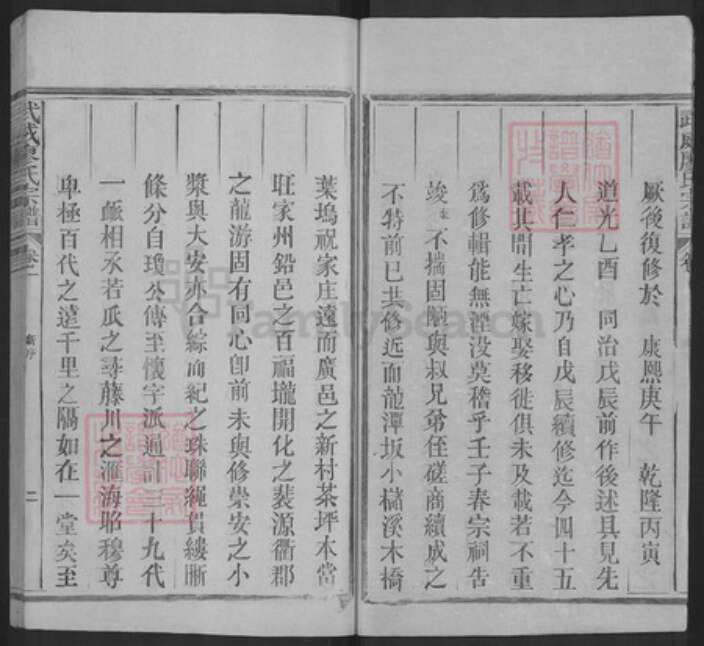 厥後復修於 康熙庚午 乾隆丙寅
道光乙酉 同治戊辰前作後述具見先
人仁孝之心乃自戊辰續修迄今四十五
載其間生亡嫁娶移徙俱未及載若不重
爲修輯能無湮没莫稽乎壬子春宗祠告
竣 不揣固陋與叔兄弟侄磋商續成之
不特前已共修近而龍潭坂小櫧溪木橋
葉塢祝家庄遠而廣邑之新村茶坪本當
旺家州鉛邑之百福壠開化之裴源衢郡
之龍游固有同心卽前未與修崇安之小
漿與大安亦合綜而紀之珠聯繩貫縷晰
條分自瓊公傳至懷字派通計三十九代
一脈相承若瓜之藤川之滙海昭穆尊
卑極百代之遠千里之隔如在一堂矣至
武城 氏宗譜
卷
二
FamilySearch